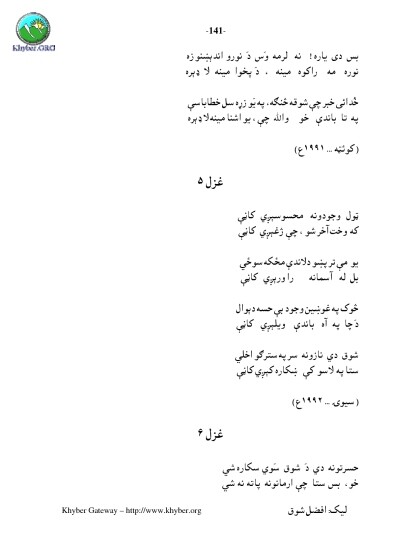 -141-
Khyber.ORG
بس دی یاره! نه لرمه وَس دَ نورو اندېښنو زه
نوره مه راکوه مینه ، دَ پخوا مینه لا ډېره
خُدائی خبر چې شوقه څنګه، په یَو زړه سل خطا باسې
په تا باندې خو والله چې، یو اشنا مینه لا ډېره
( کوئټه ... ۱۹۹۱ع)
غزل ۵
ټول وجودونه محسوسېږي کاڼې
که وخت آخر شو ، چې ژغېږي کاڼې
یو مې تر پښو دلاندې مځکه سوځي
بل له آسمانه را ورېږي کاڼې
څوک په غوښین وجود بې حسه دېوال
دَ چا په آه باندې ویلېږي کاڼې
شوق دي نازونه سر په سترګو اخلي
ستا په لاسو کې ښکاره کېږي کاڼې
( سیوۍ ... ۱۹۹۲ع)
غزل ۶
حسرتونه دي دَ شوق سَوي سکاره شي
خَو، بس ستا چې ارمانونه پاته نه شي
لیک: افضل شوق
Khyber Gateway – http://www.khyber.org